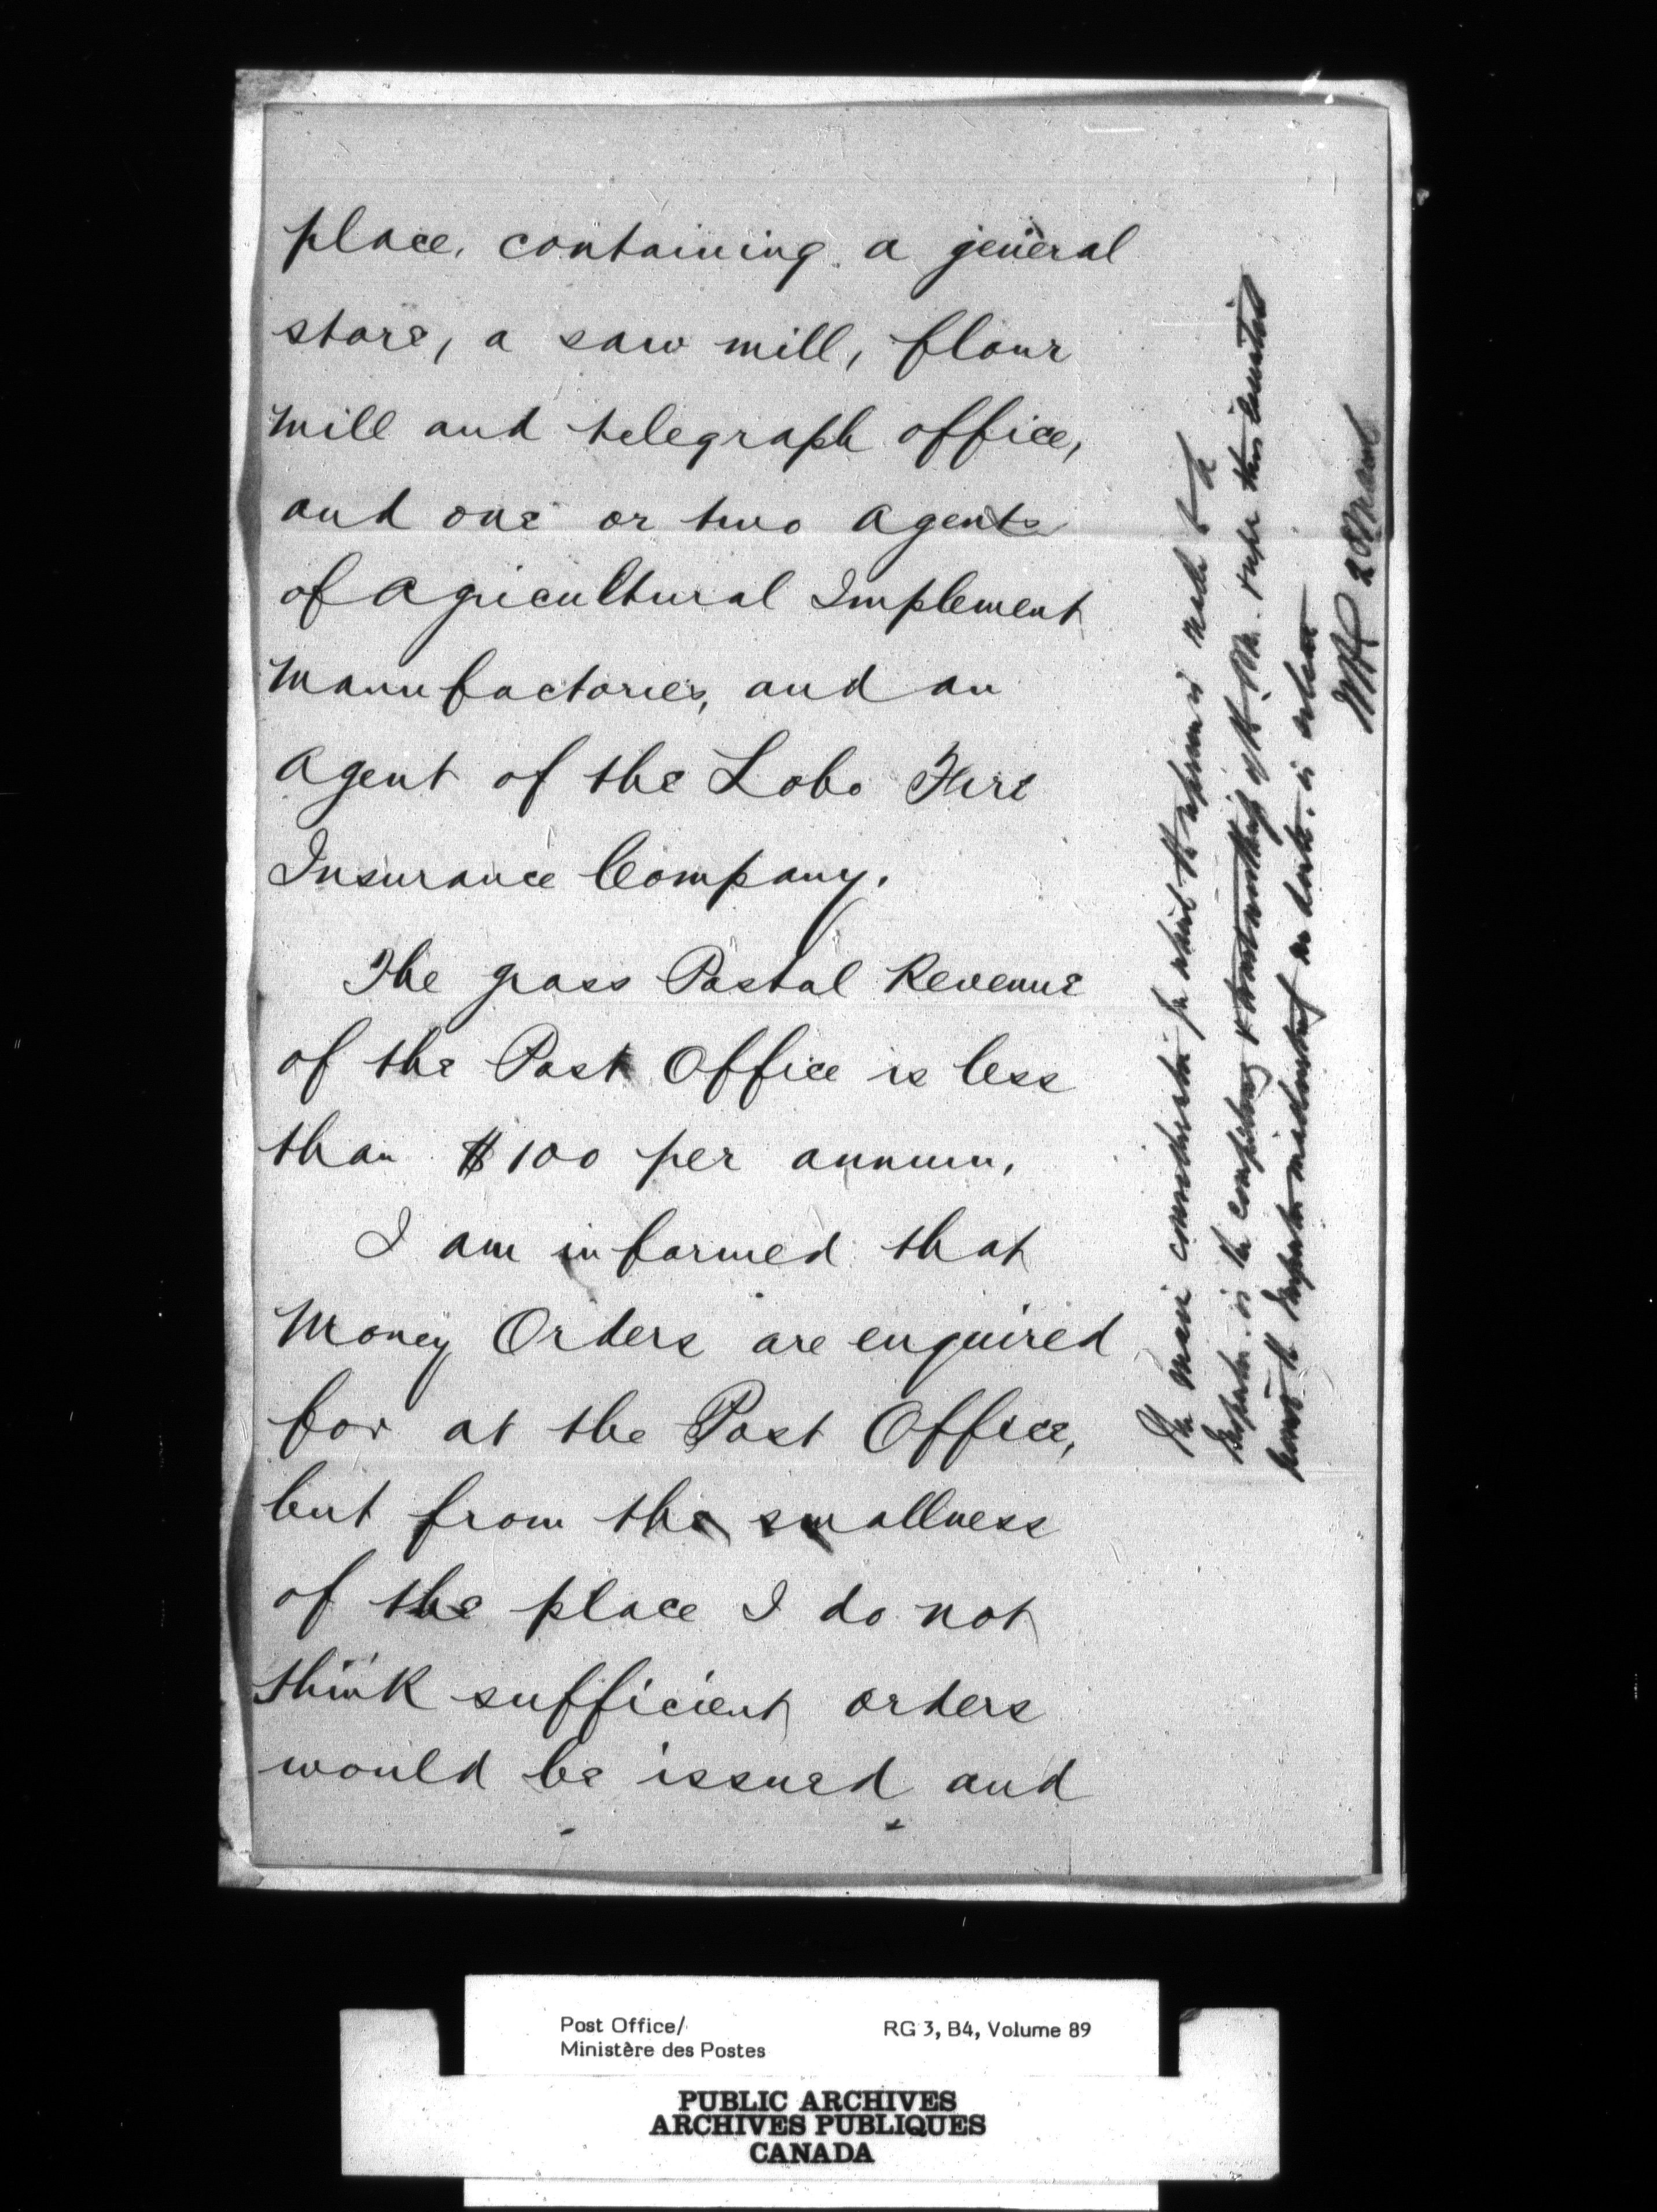 place, containing a general
store, a saw mill, flour
mill and telegraph office,
and one or two agents
of Agricultural Implement
Manufactories, and an
agent of the Lobo Fire
Insurance Company.
The gross Postal Revenue
of the Post Office is less
than $100 per annum.
I am informed that
Money Orders are enquired
for at the Post Office,
but from the smallness
of the place I do not
think sufficient orders
would be issued and
The main consideration for which the reference is made to the
Inspector is the competency & trustworthiness of the P.M. & upon this
the Inspector
28 March
Post Office/
Ministère des Postes
RG 3, B4, Volume 89
PUBLIC ARCHIVES
ARCHIVES PUBLIQUES
CANADA